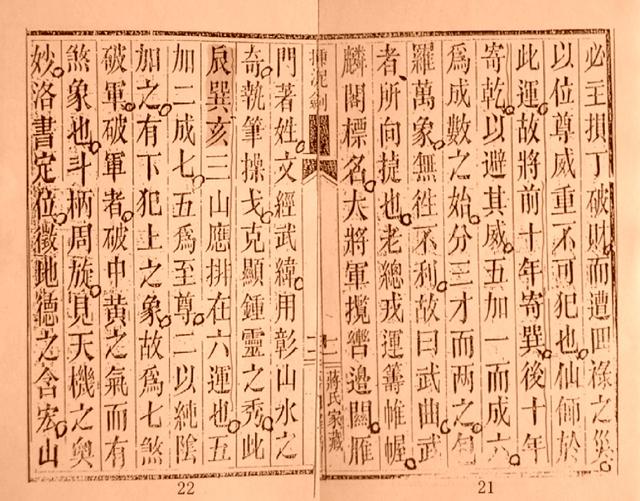 必主損丁破財而遭囬祿之災
以位尊威重不可犯也仙師於
此運故將前十年寄巽後十年
寄乾以避其威五加一而成六
爲成數之始分三才而兩之包
羅萬象無徃不利故曰武曲武
者所向捷也老總戎運籌帷幄
麟閣標名大將軍攬轡邊關雁
蔣氏家藏
門著姓文經武緯用彰山水之
奇執筆操戈克顯鍾靈之秀此
辰巽亥三山應排在六運也五
加二成七五爲至尊二以純陰
加之有下犯上之象故爲七煞
破軍破軍者破中黃之氣而有
煞象也斗柄周旋見天機之奧
妙洛書定位徵地德之含宏山
21
22